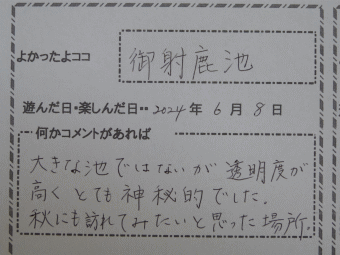 よかったよココ
御射鹿池
遊んだ日・楽しんだ日・・2024年6月8日
何かコメントがあれば
大きな池ではないが透明度が
高くとても神秘的でした。
秋にも訪れてみたいと思った場所。